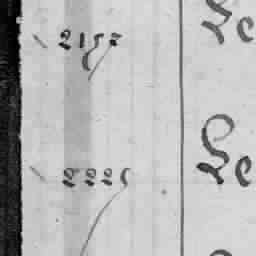 2157
Le
2225
Le